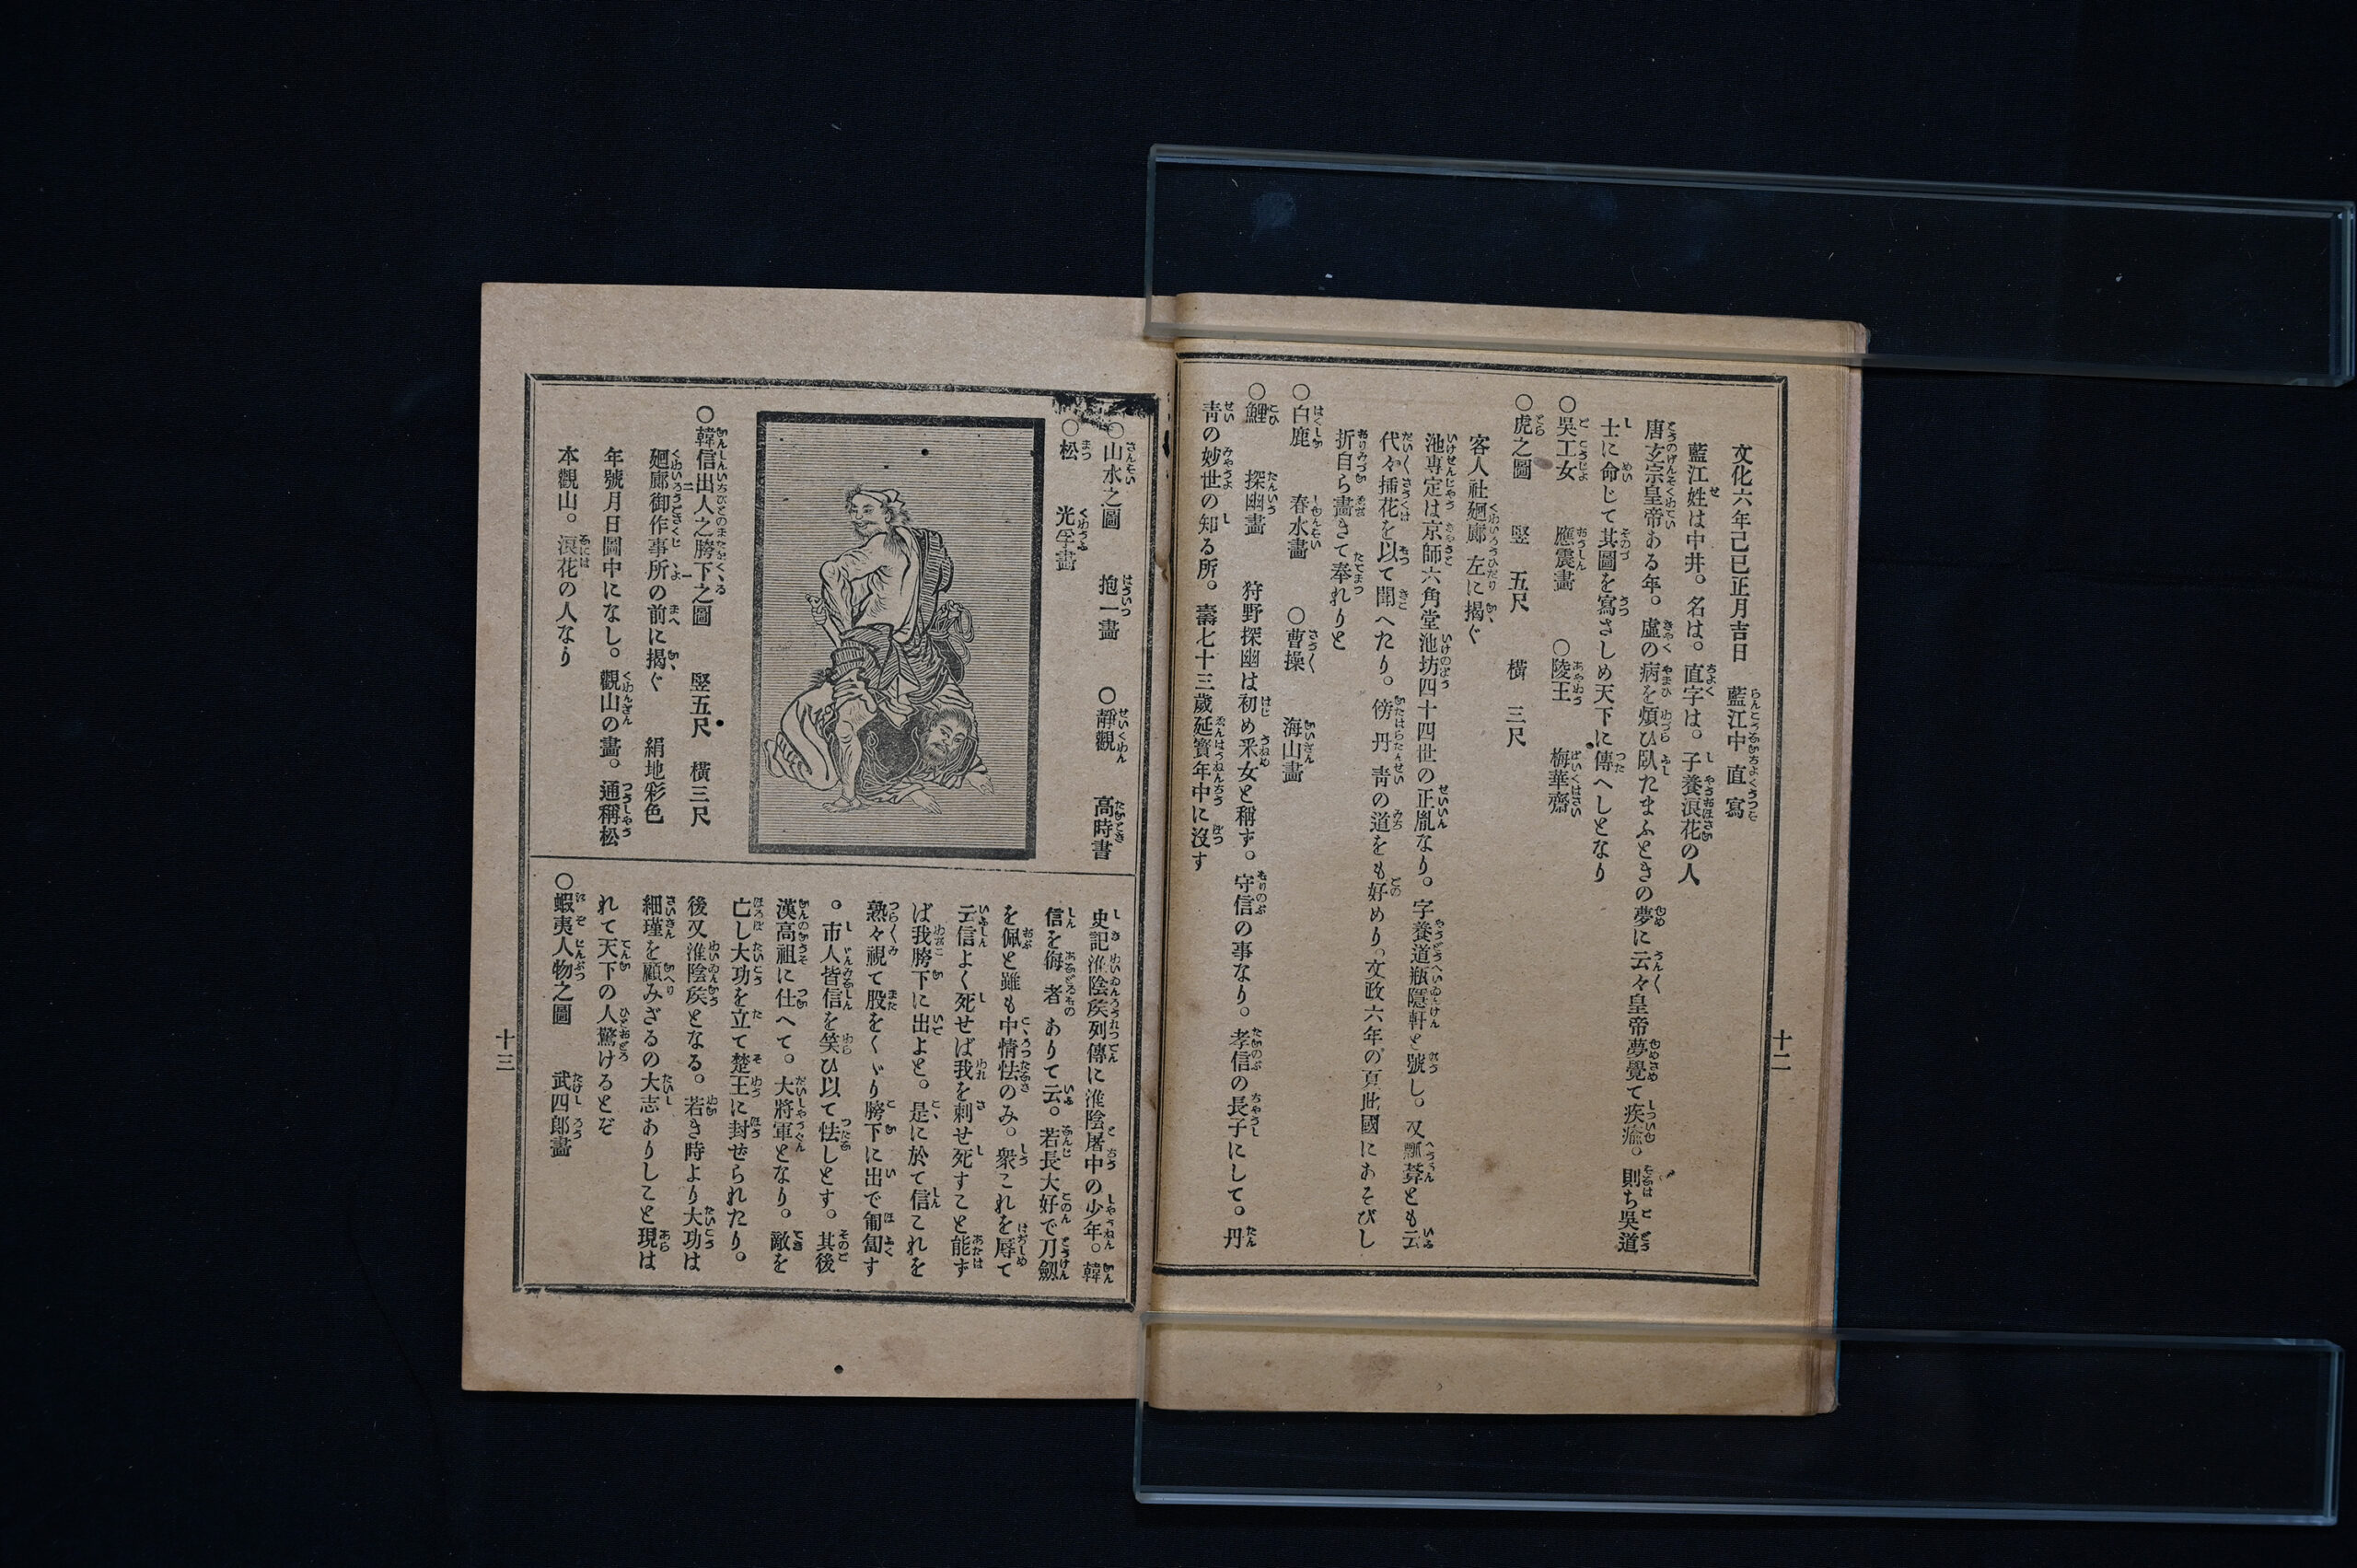 文化六年己巳正月吉日　藍江中直寫
藍江姓は中井。名は。直字は。子養浪花の人
唐玄宗皇帝ある年。虛の病を煩ひ臥たまふときの夢に云々皇帝夢覺て疾癒。則ち吳道
士に命じて其圖を寫さしめ天下に傳へしとなり
○吳工女　應震畫　○陵王　梅華齋
○虎之圖　竪　五尺　橫　三尺
客人社廻廊左に揭ぐ
池専定は京師六角堂池坊四十四世の正胤なり。字養道瓶隱軒と號し。又瓢葊とも云
代々揷花を以て聞へたり。傍丹靑の道をも好めり。文政六年の頁此國にあそびし
折自ら畫きて奉れりと
○白鹿　春水畫　○曹操　海山畫
○鯉　探幽畫　狩野探幽は初め釆女と稱ず。守信の事なり。孝信の長子にして。丹
靑の妙世の知る所。壽七十三歲延寳年中に沒す
十二
○山水之圖　抱一畫　○靜觀　高時書
○松　光孚畫
○韓信出人之胯下之圖　竪五尺　橫三尺
廻廊御作事所の前に揭ぐ　絹地彩色
年號月日圖中になし。觀山の畫。通稱松
本觀山。浪花の人なり
史記淮陰矦列傳に淮陰屠中の少年。韓
信を侮者ありて云。若長大好で刀劔
を佩と雖も中情怯のみ。衆これを辱て
云信よく死せば我を刺せ死すこと能ず
ば我胯下に出よと。是に於て信これを
熟々視て股をくゞり胯下に出で匍匐す
。市人皆信を笑ひ以て怯しとす。其後
漢高祖に仕へて。大將軍となり。敵を
亡し大功を立て楚王に封ぜられたり。
後又淮陰矦となる。若き時より大功は
細瑾を顧みざるの大志ありしこと現は
れて天下の人驚けるとぞ
○蝦夷人物之圖　武四郎畫
十三